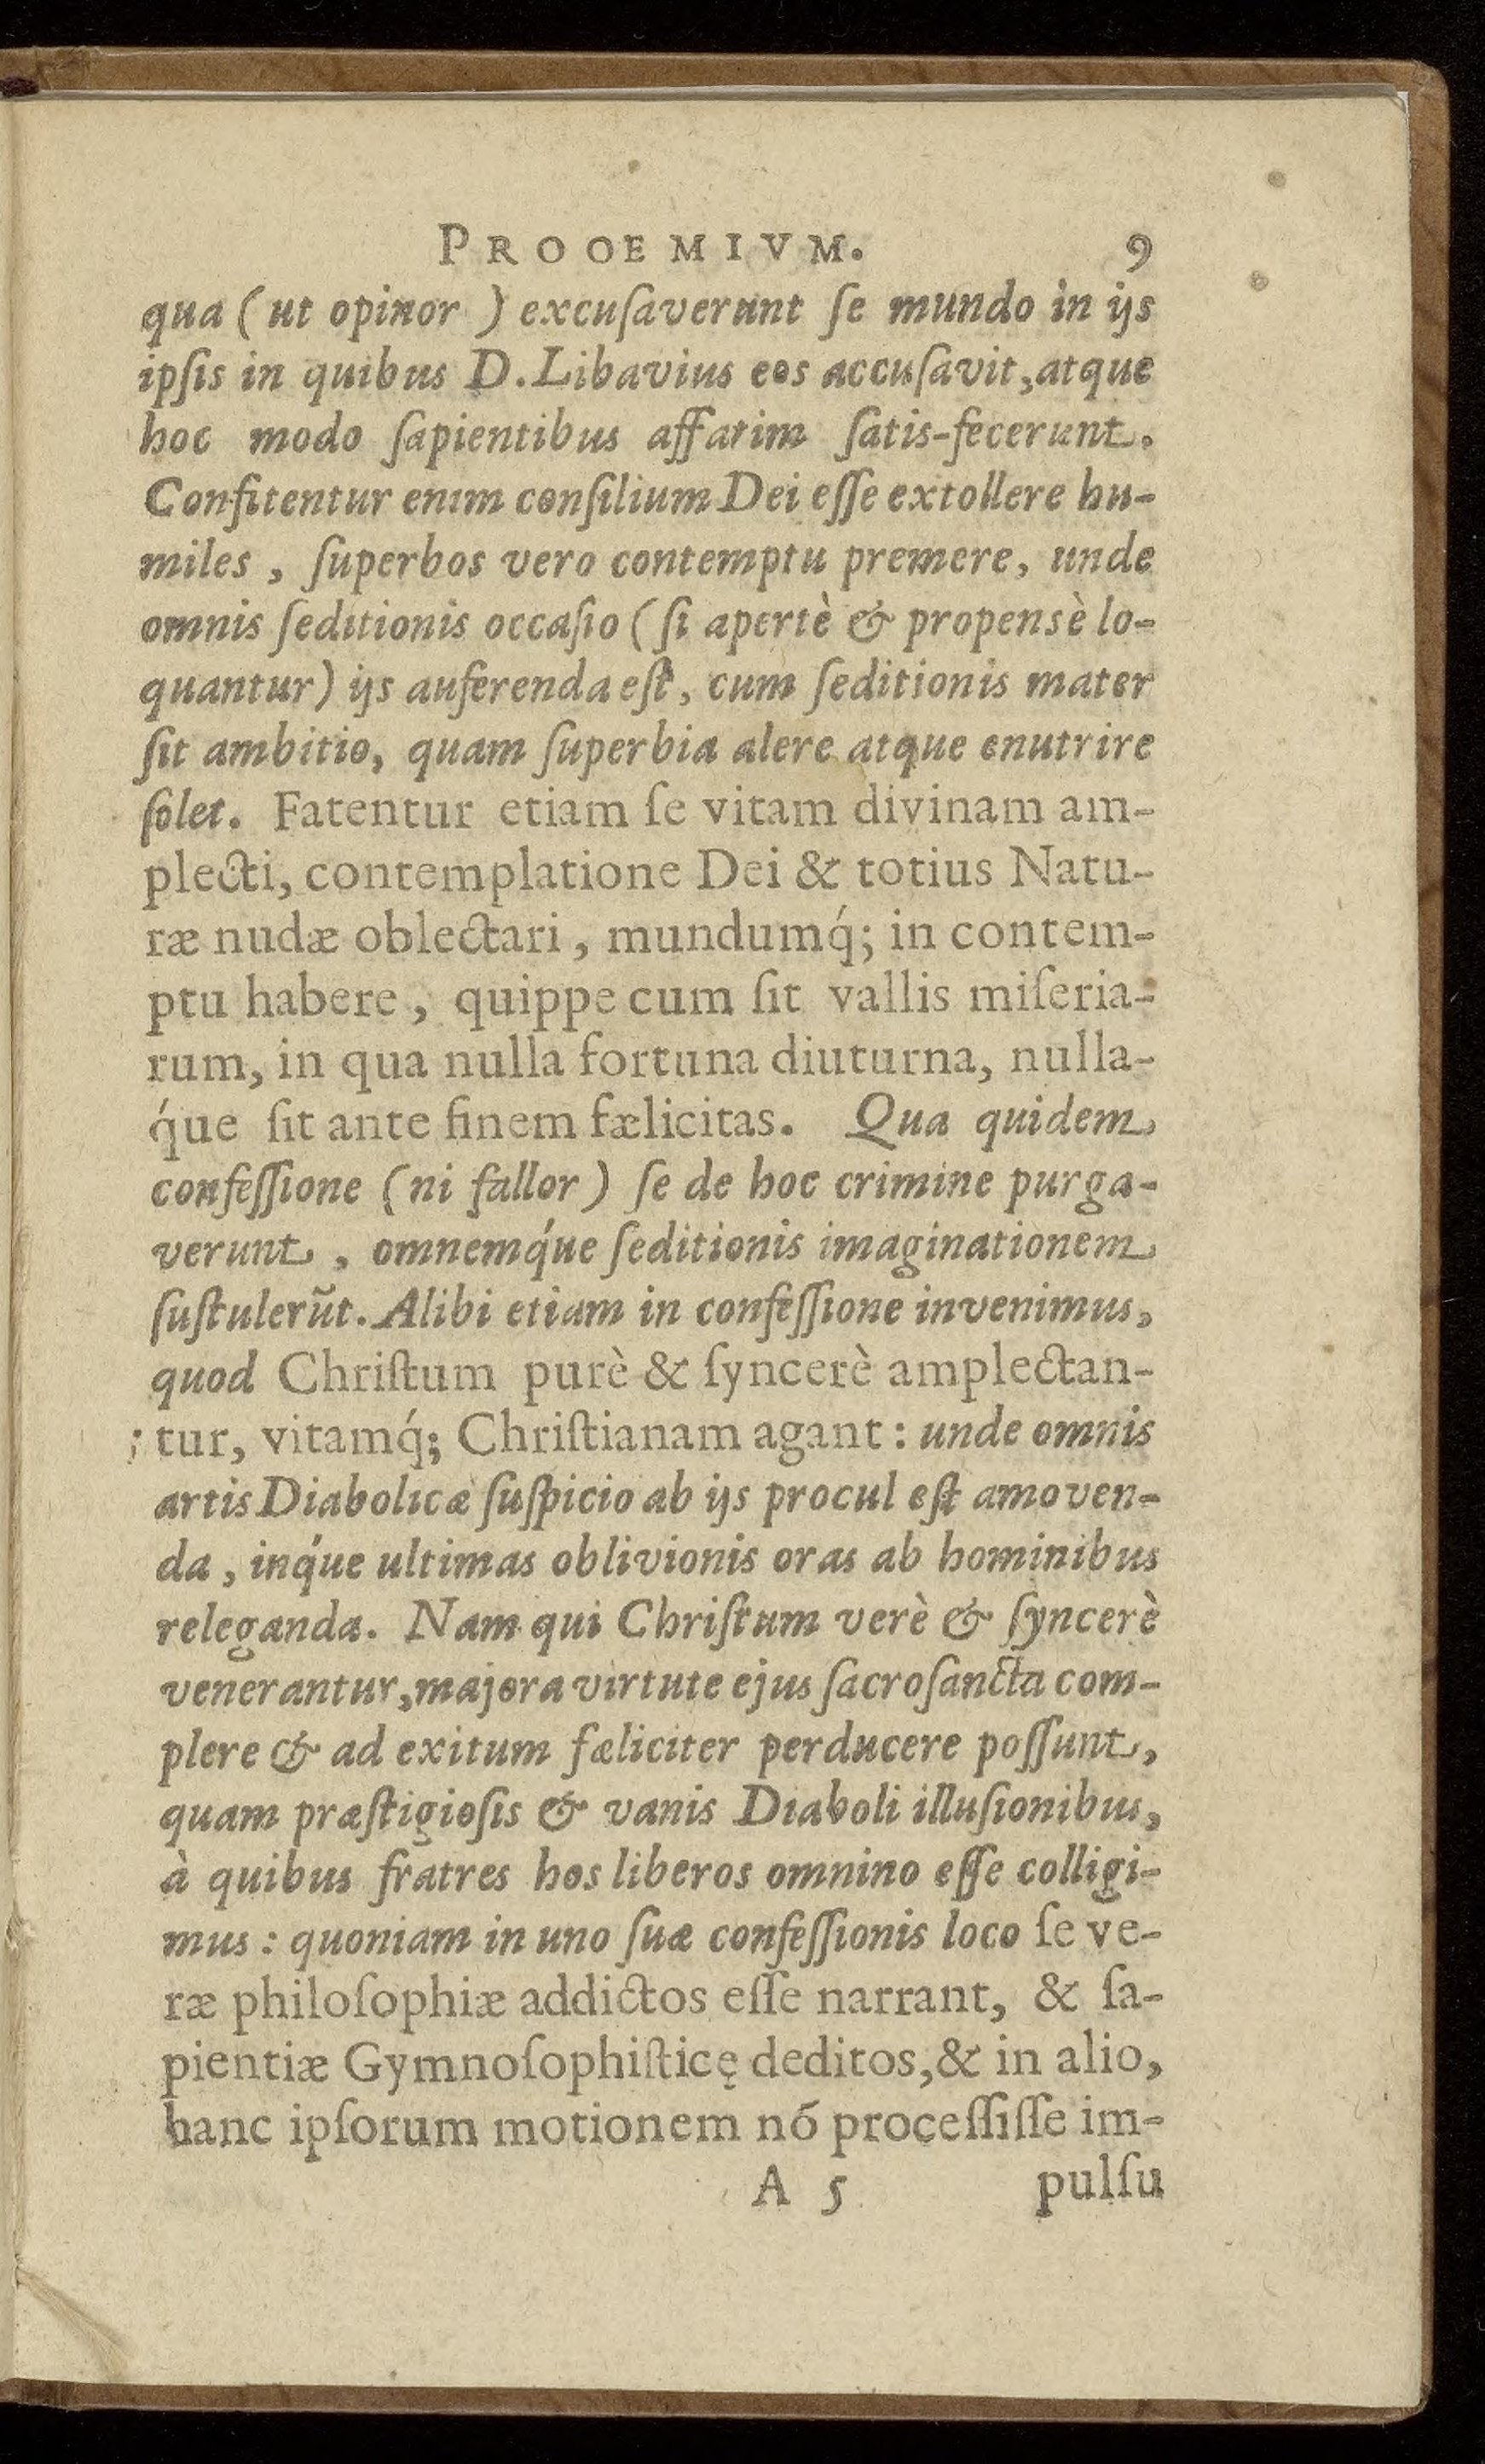 PROOEMIVM. 9
qua ( ut opinor ) excuſaverunt ſe mundo in ijs
ipſis in quibus D. Libavius eos accuſavit, atque
hoc modo ſapientibus affatim ſatis-fecerunt.
Confitentur enim conſilium Dei eſſe extollere hu-
miles , ſuperbos vero contemptu premere, unde
omnis ſeditionis occaſio ( ſi apertè & propensè lo-
quantur) ijs auferenda eſt, cum ſeditionis mater
ſit ambitio, quam ſuperbia alere atque enutrire
ſolet. Fatentur etiam ſe vitam divinam am-
plecti, contemplatione Dei & totius Natu-
ræ nudæ oblectari , mundumq́; in contem-
ptu habere , quippe cum ſit vallis miſeria-
rum, in qua nulla fortuna diuturna, nulla-
q́ue ſit ante finem fælicitas. Qua quidem
confeſſione (ni fallor) ſe de hoc crimine purga-
verunt , omnemq́ue ſeditionis imaginationem
ſuſtulerũt. Alibi etiam in confeſſione invenimus,
quod Chriſtum purè & ſyncerè amplectan-
tur, vitamq́; Chriſtianam agant : unde omnis
artis Diabolicæ ſuſpicio ab ijs procul eſt amoven-
da , inq́ue ultimas oblivionis oras ab hominibus
releganda. Nam qui Chriſtum verè & ſyncerè
venerantur, majora virtute ejus ſacroſancta com-
plere & ad exitum fæliciter perducere poſſunt,
quam præſtigioſis & vanis Diaboli illuſionibus,
à quibus fratres hos liberos omnino eſſe colligi-
mus : quoniam in uno ſuæ confeſſionis loco ſe ve-
ræ philoſophiæ addictos eſſe narrant, & ſa-
pientiæ Gymnoſophiſticę deditos, & in alio,
hanc ipſorum motionem nõ proceſſiſſe im-
A 5 pulſu